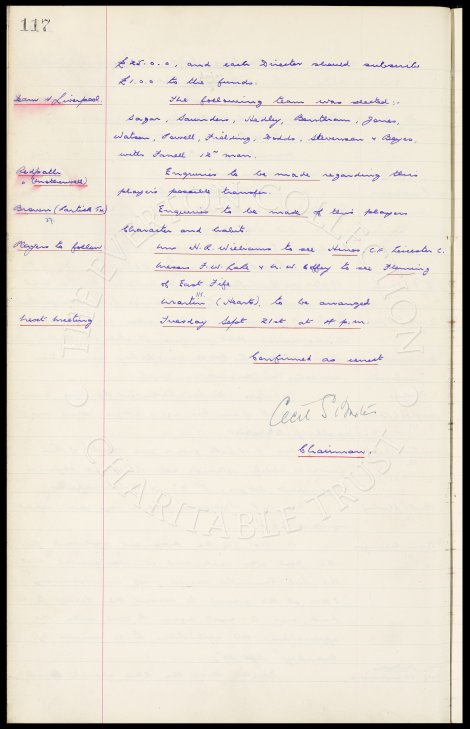 117
£25.0.0, and each Director should subscribe
£1.0.0 to the funds.
Team v Liverpool. The following team was selected :-
Sagar, Saunders, Hedley, Bentham, Jones,
Watson, Farrell, Fielding, Dodds, Stevenson & Boyes,
with Farrell 12th man.
Redpath Enquries to be made regarding this
(Motherwell) player's possible transfer.
Brown (Partick Th) Enquries to be made of this players
character and habits.
Players to follow Mr H. R. Williams to see Hines (C.F. Leicester C.
Messrs F. W. Lake & W. C. Coffey to see Fleming
of East Fife
Martin (Hearts), to be arranged
Next Meeting Tuesday Sept 21st at 4 p.m.
Confirmed as correct
Cecil S
Chairman.
THE EVERTON COLLECTION
CHARITABLE TRUST